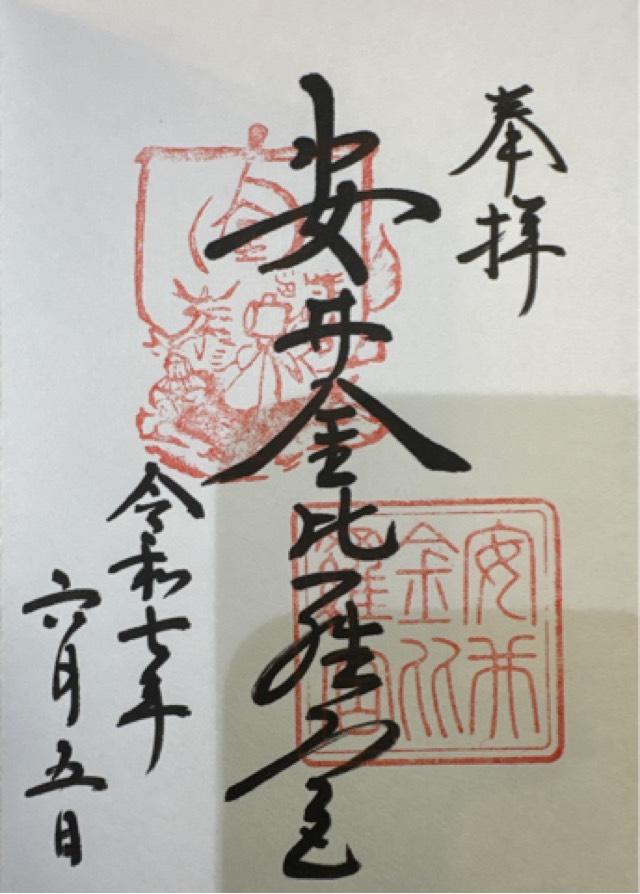 奉拝
安井金比羅宮
令和七年
六月五日
安井
金比
羅宮